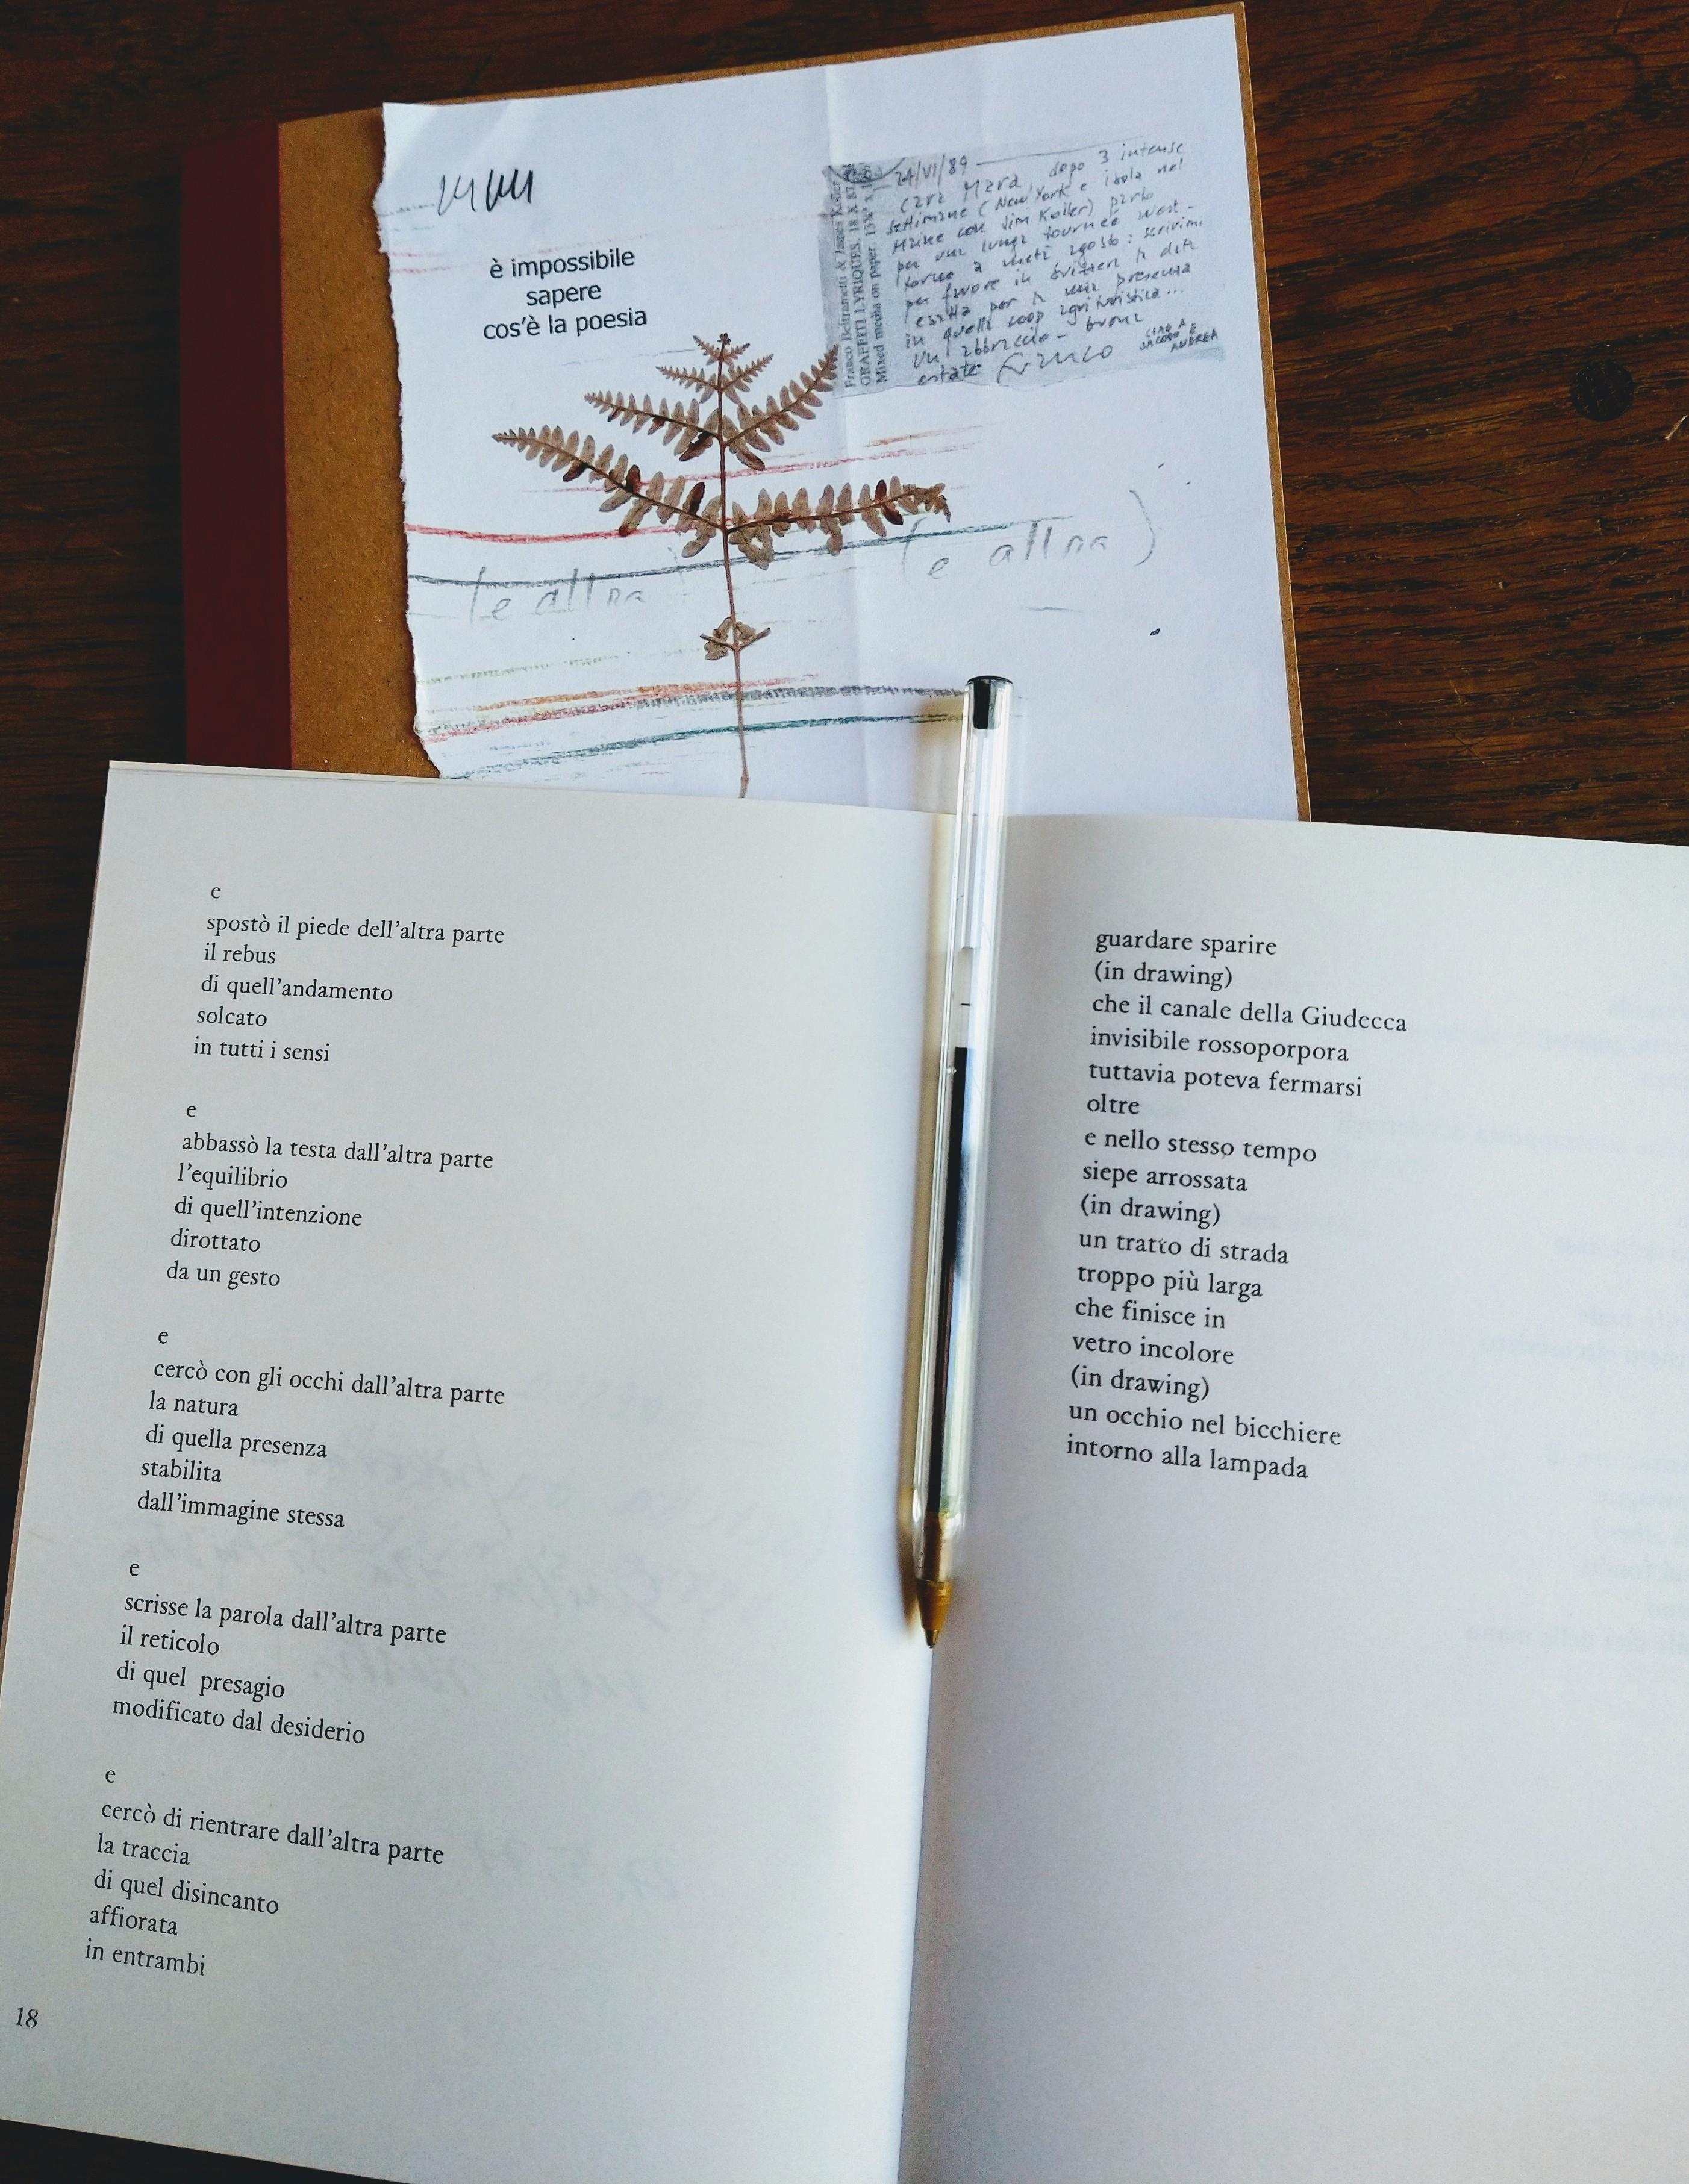 è impossibile
sapere
cos'è la poesia
Franco Beltrametti & James Koller
GRAFFITI LYRIQUES, 18 X
Mixed media on paper. 13¾" x
24/VI/89
cara Mara, dopo 3 intense
settimane (New York e isola nel
Maine con Jim Koller) parto
per una lunga tournée West-
torno a metà agosto: scrivimi
per favore in Svizzera la data
esatta per la mia presenza
in quella coop agrituristica...
un abbraccio - buona
estate Franco
CIAO A
JACOPO E
ANDREA
(e altra
(e altra)
e
spostò il piede dell'altra parte
il rebus
di quell'andamento
solcato
in tutti i sensi
e
abbassò la testa dall'altra parte
l'equilibrio
di quell'intenzione
dirottato
da un gesto
e
cercò con gli occhi dall'altra parte
la natura
di quella presenza
stabilita
dall'immagine stessa
e
scrisse la parola dall'altra parte
il reticolo
di quel presagio
modificato dal desiderio
e
cercò di rientrare dall'altra parte
la traccia
di quel disincanto
affiorata
in entrambi
18
guardare sparire
(in drawing)
che il canale della Giudecca
invisibile rossoporpora
tuttavia poteva fermarsi
oltre
e nello stesso tempo
siepe arrossata
(in drawing)
un tratto di strada
troppo più larga
che finisce in
vetro incolore
(in drawing)
un occhio nel bicchiere
intorno alla lampada